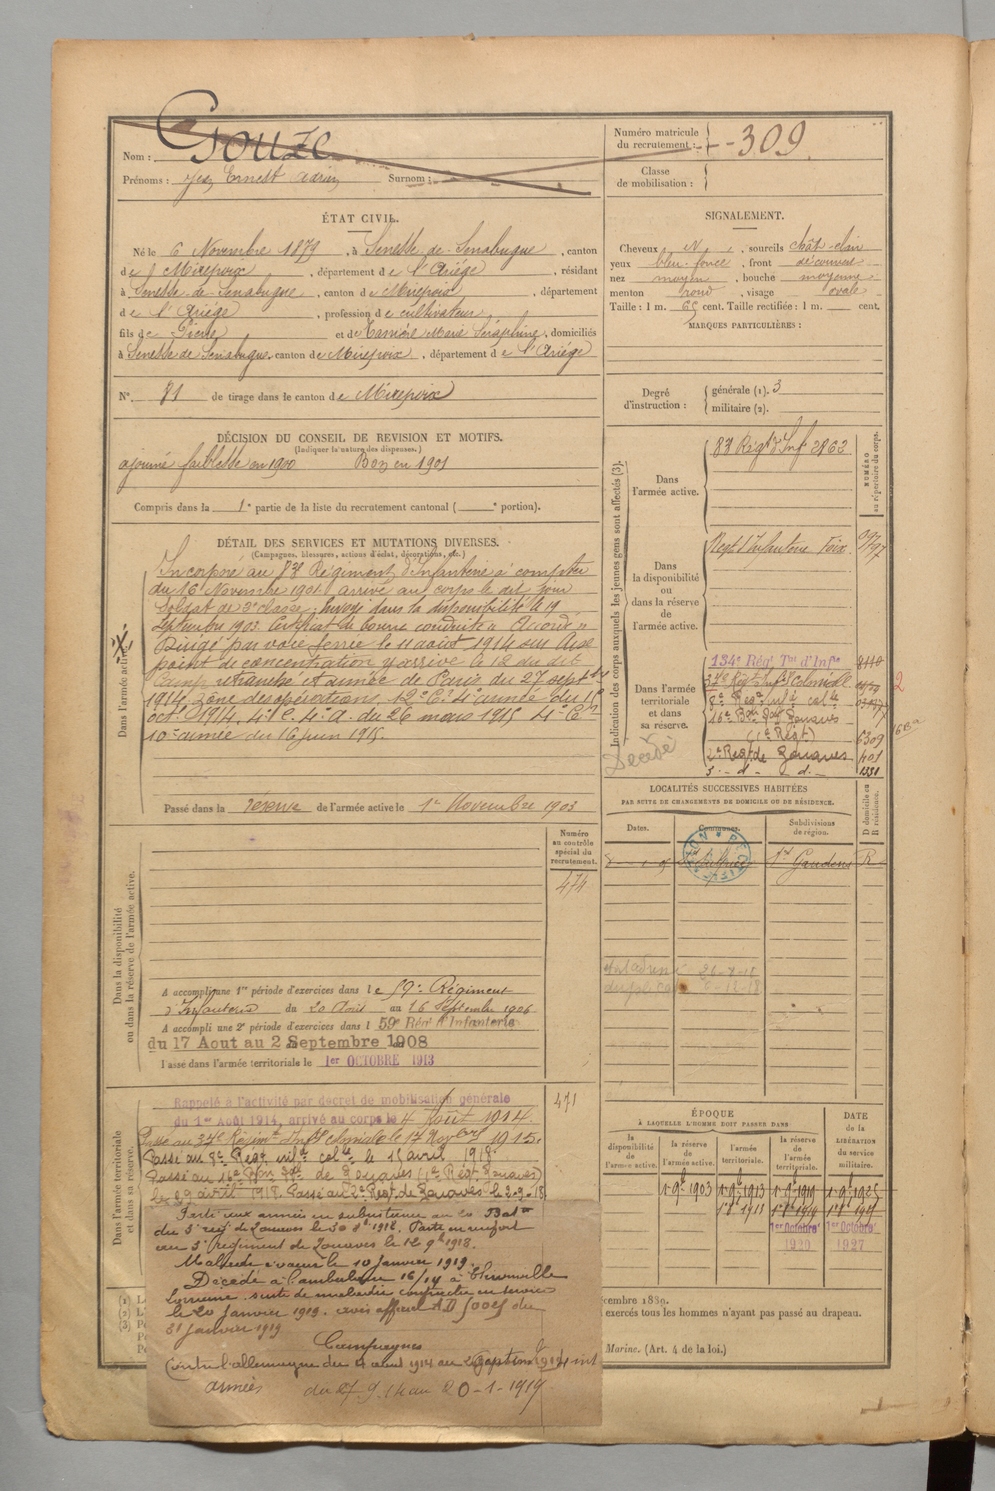 Nom : Gouze
Prénoms : Jean Ernest Adrien Surnom :
Numéro matricule du recrutement : 309
Classe de mobilisation :
ÉTAT CIVIL.
Né le 6 Novembre 1879, à Senesse-de-Senabugue, canton
de Mirepoix, département de l'Ariége, résidant
à Senesse-de-Senabugue, canton de Mirepoix, département
de l'Ariége, profession de cultivateur
fils de Pierre et de Marie Séraphine, domiciliés
à Senesse de Senabugue, canton de Mirepoix, département de l'Ariége
N° 81 de tirage dans le canton de Mirepoix
SIGNALEMENT.
Cheveux N, sourcils chât-clair
yeux bleu foncé, front découvert
nez moyen, bouche moyenne
menton rond, visage ovale
Taille : 1 m. 65 cent. Taille rectifiée : 1 m. cent.
MARQUES PARTICULIÈRES :
Degré d'instruction : générale (1). 3
militaire (2).
DÉCISION DU CONSEIL DE REVISION ET MOTIFS.
(Indiquer la nature des dispenses.)
ajourné faiblesse en 1900 Bon en 1901
Compris dans la 1e partie de la liste du recrutement cantonal ( e portion).
DÉTAIL DES SERVICES ET MUTATIONS DIVERSES.
(Campagnes, blessures, actions d'éclat, décorations, etc.)
Dans l'armée active.
Incorporé au 83e Régiment d'Infanterie à compter
du 16 Novembre 1901 arrivé au corps le dit jour
Soldat de 2e classe. Envoyé dans la disponibilité le 19
Septembre 1903. Certificat de bonne conduite "Accordé"
Dirigé par voie ferrée le 11 août 1914 sur
point de concentration y arrivé le 12 du dit
Camp retranché et armée de Paris du 27 septbre
1914. Zône des opérations. 12e C. 4e armée du 1er
oct. 1914. 4e C. 4e A. du 26 mars 1915. 4e C.
10e armée du 16 juin 1915.
Passé dans la réserve de l'armée active le 1er Novembre 1903
Indication des corps auxquels les jeunes gens sont affectés (3).
NUMÉRO au répertoire du corps.
Dans l'armée active.
83 Régt d'Inf 2862
Dans la disponibilité ou dans la réserve de l'armée active.
Regt d'Infanterie Foix
Dans l'armée territoriale et dans sa réserve.
134e Régt Tal d'Infie 8110
37e Régt Inft Coloniale
8e Régt infie colle
16e Bon Zouaves
(1e Régt) 6309
2e Régt de Zouaves
3 - d - d - 1331
Décédé
LOCALITÉS SUCCESSIVES HABITÉES
PAR SUITE DE CHANGEMENTS DE DOMICILE OU DE RÉSIDENCE.
Dates. Communes. Subdivisions de région. D domicile ou R résidence.
St Gaudens R
Dans la disponibilité ou dans la réserve de l'armée active.
Numéro au contrôle spécial du recrutement.
474
A accompli une 1re période d'exercices dans le 59e Régiment
d'Infanterie du 20 Août au 16 Septembre 1906
A accompli une 2e période d'exercices dans l 59e Régt d'Infanterie
du 17 Aout au 2 Septembre 1908
Passé dans l'armée territoriale le 1er OCTOBRE 1913
Dans l'armée territoriale et dans sa réserve.
Rappelé à l'activité par décret de mobilisation générale 471
du 1er Août 1914, arrivé au corps le 4 Août 1914.
Passé au 37e Régimt Infie coloniale le 17 Novbre 1915.
Passé au 8e Régt infie colle le 15 avril 1918
Passé au 16e Bon de Zouaves (1e Régt Zouaves)
le 29 avril 1918. Passé au 2e Régt de Zouaves le 2-9-18
Parti aux armées en subsistance au 20 Baton
du 3e rég. de Zouaves le 30 8e 1918. Parti en renfort
au 3e Régiment de Zouaves le 12 9b 1918.
Malade évacué le 10 Janvier 1919.
Décédé à l'ambulance 16/14 à Thionville
Lorraine suite de maladie contractée en service
le 20 Janvier 1919. avis officiel du
31 Janvier 1919
Campagnes
Contre l'allemagne du 4 août 1914 au 26 Septembre 1914 int
armées du 27-9-14 au 20-1-1919
ÉPOQUE
À LAQUELLE L'HOMME DOIT PASSER DANS
la disponibilité de l'armée active. la réserve de l'armée active. l'armée territoriale. la réserve de l'armée territoriale.
DATE de la LIBÉRATION du service militaire.
1 9b 1903 1 9b 1913 1 9b 1919 1 9b 1925
1er Octobre 1920 1er Octobre 1927
cembre 1889.
exercés tous les hommes n'ayant pas passé au drapeau.
Marine. (Art. 4 de la loi.)